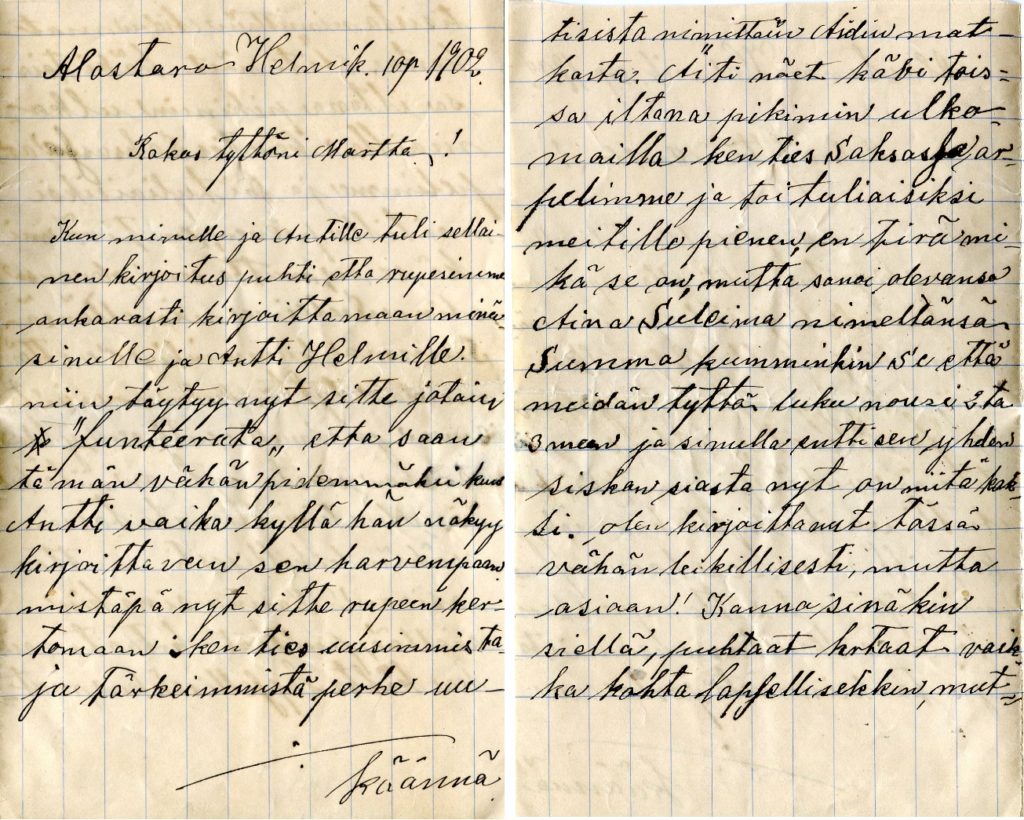 Alastaro Helmik. 10p 1902.
Rakas tyttöni Martta!
Kun minulle ja Antille tuli sellai-
nen kirjoitus puhti etta rupesimme
ankarasti kirjoittamaan minä
sinulle ja Antti Helmille.
niin täytyy nyt sitte jotain
"funteerata„ etta saan
tämän vähän pidemmäksi kuin
Antti vaika kyllä hän näkyy
kirjoittavan sen harvempaan
mistäpä nyt sitte rupeen ker-
tomaan kenties uusimmista
ja tärkeimmistä perhe uu-
Käännä
tisista nimittäin Äidin mat-
kasta. Äiti näet kävi tois-
sa iltana pikimin ulko-
mailla ken ties Saksassa
pelimme ja toi tuliaisiksi
meitille pienen, en tirä mi-
kä se on, mutta sanoi olevansa
Aina Suleima nimeltänsä
Summa kumminkin se että
meidän tyttö luku nousi 2ta
3meen ja sinulla enttisen yhden
siskon siasta nyt on mitä kak-
si. olen kirjoittanut tässä
vähän leikillisesti, mutta
asiaan! Kanna sinäkin
siellä, puhtaat hrtaat vaik-
ka kohta lapsellisekkin, mut-